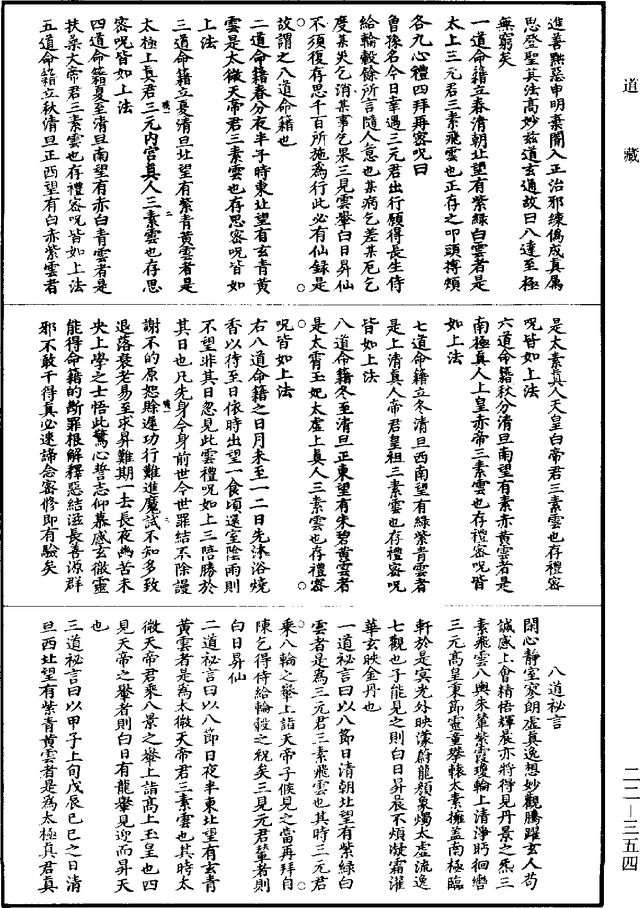 道藏
進善黜惡申明素聞入正治邪練偽成真屬
思登聖其法高妙茲道玄通故曰八達至極
無窮矣
一道命籍立春清朝北望有紫綠白雲者是
太上三元君三素飛雲也正存之叩頭搏頰
各九心禮四拜再密呪曰
曾孫名今日幸遇三元君出行願得長生侍
給輪轂餘所言隨人意也某病乞差某死乞
度某失乞消某事乞果三見雲轝白日昇仙
不須復存思千百所施為行此必有仙錄是
故謂之八道命籍也
二道命籍春分夜半子時東北望有玄青黃
雲是太微天帝君三素雲也存思密呪皆如
上法
三道命籍立夏清旦北望有紫青黃雲者是
太極上真君三元內宮真人三素雲也存思
密呪皆如上法
四道命籍夏至清旦南望有赤白青雲者是
扶桑大帝君三素雲也存禮密呪皆如上法
五道命籍立秋清旦正西望有白赤紫雲者
是太素真人天皇白帝君三素雲也存禮密
呪皆如上法
六道命籍秋分清旦南望有素赤黃雲者是
南極真人上皇赤帝三素雲也存禮密呪皆
如上法
七道命籍立冬清旦西南望有綠紫青雲者
是上清真人帝君皇祖三素雲也存禮密呪
皆如上法
八道命籍冬至清旦正東望有朱碧黃雲者
是太霄玉妃太虛上真人三素雲也存禮密
呪皆如上法
右八道命籍之日月未至一二日先沐浴燒
香以待至日依時出望一食頃還室陰雨則
不望非其日忽見此雲禮呪如上三陪勝於
其日也凡先身今身前世今世罪結不除謾
謝不的原恕賒遲功行難進魔試不知多致
退落衰老易至求昇難期一去長夜幽苦未
央上學之士悟此驚心誓志仰慕感玄徹靈
能得命籍的斷罪根解釋惡結滋長善源群
邪不敢干得真必速諦念審修即有驗矣
八道秘言
閑心靜室寥朗虛真逸想妙觀騰躍玄人苟
誠感上會精悟輝晨亦將得見丹景之炁三
素飛雲八輿朱輦紫霞瓊輪上清淨眄徊巒
三元高皇秉節靈童攀轅太素擁蓋南極臨
軒於是寞光外映濛蔚龍顏象燭太虛流逸
七觀也子能見之則白日昇晨不煩凝霜濯
華玄映金丹也
一道秘言曰以八節日清朝北望有紫綠白
雲者是為三元君三素飛雲也其時三元君
乘八輪之轝上詣天帝子候見之當再拜自
陳乞得侍給輪轂之祝矣三見元君輦者則
白日昇仙
二道秘言曰以八節日夜半東北望有玄青
黃雲者是為太微天帝君三素雲也其時太
微天帝君乘八景之轝上詣高上玉皇也四
見天帝之轝者則白日有龍轝見迎而昇天
也
三道秘言曰以甲子上旬戊辰己巳之日清
旦西北望有紫青黃雲者是為太極真君真
二二—三五四